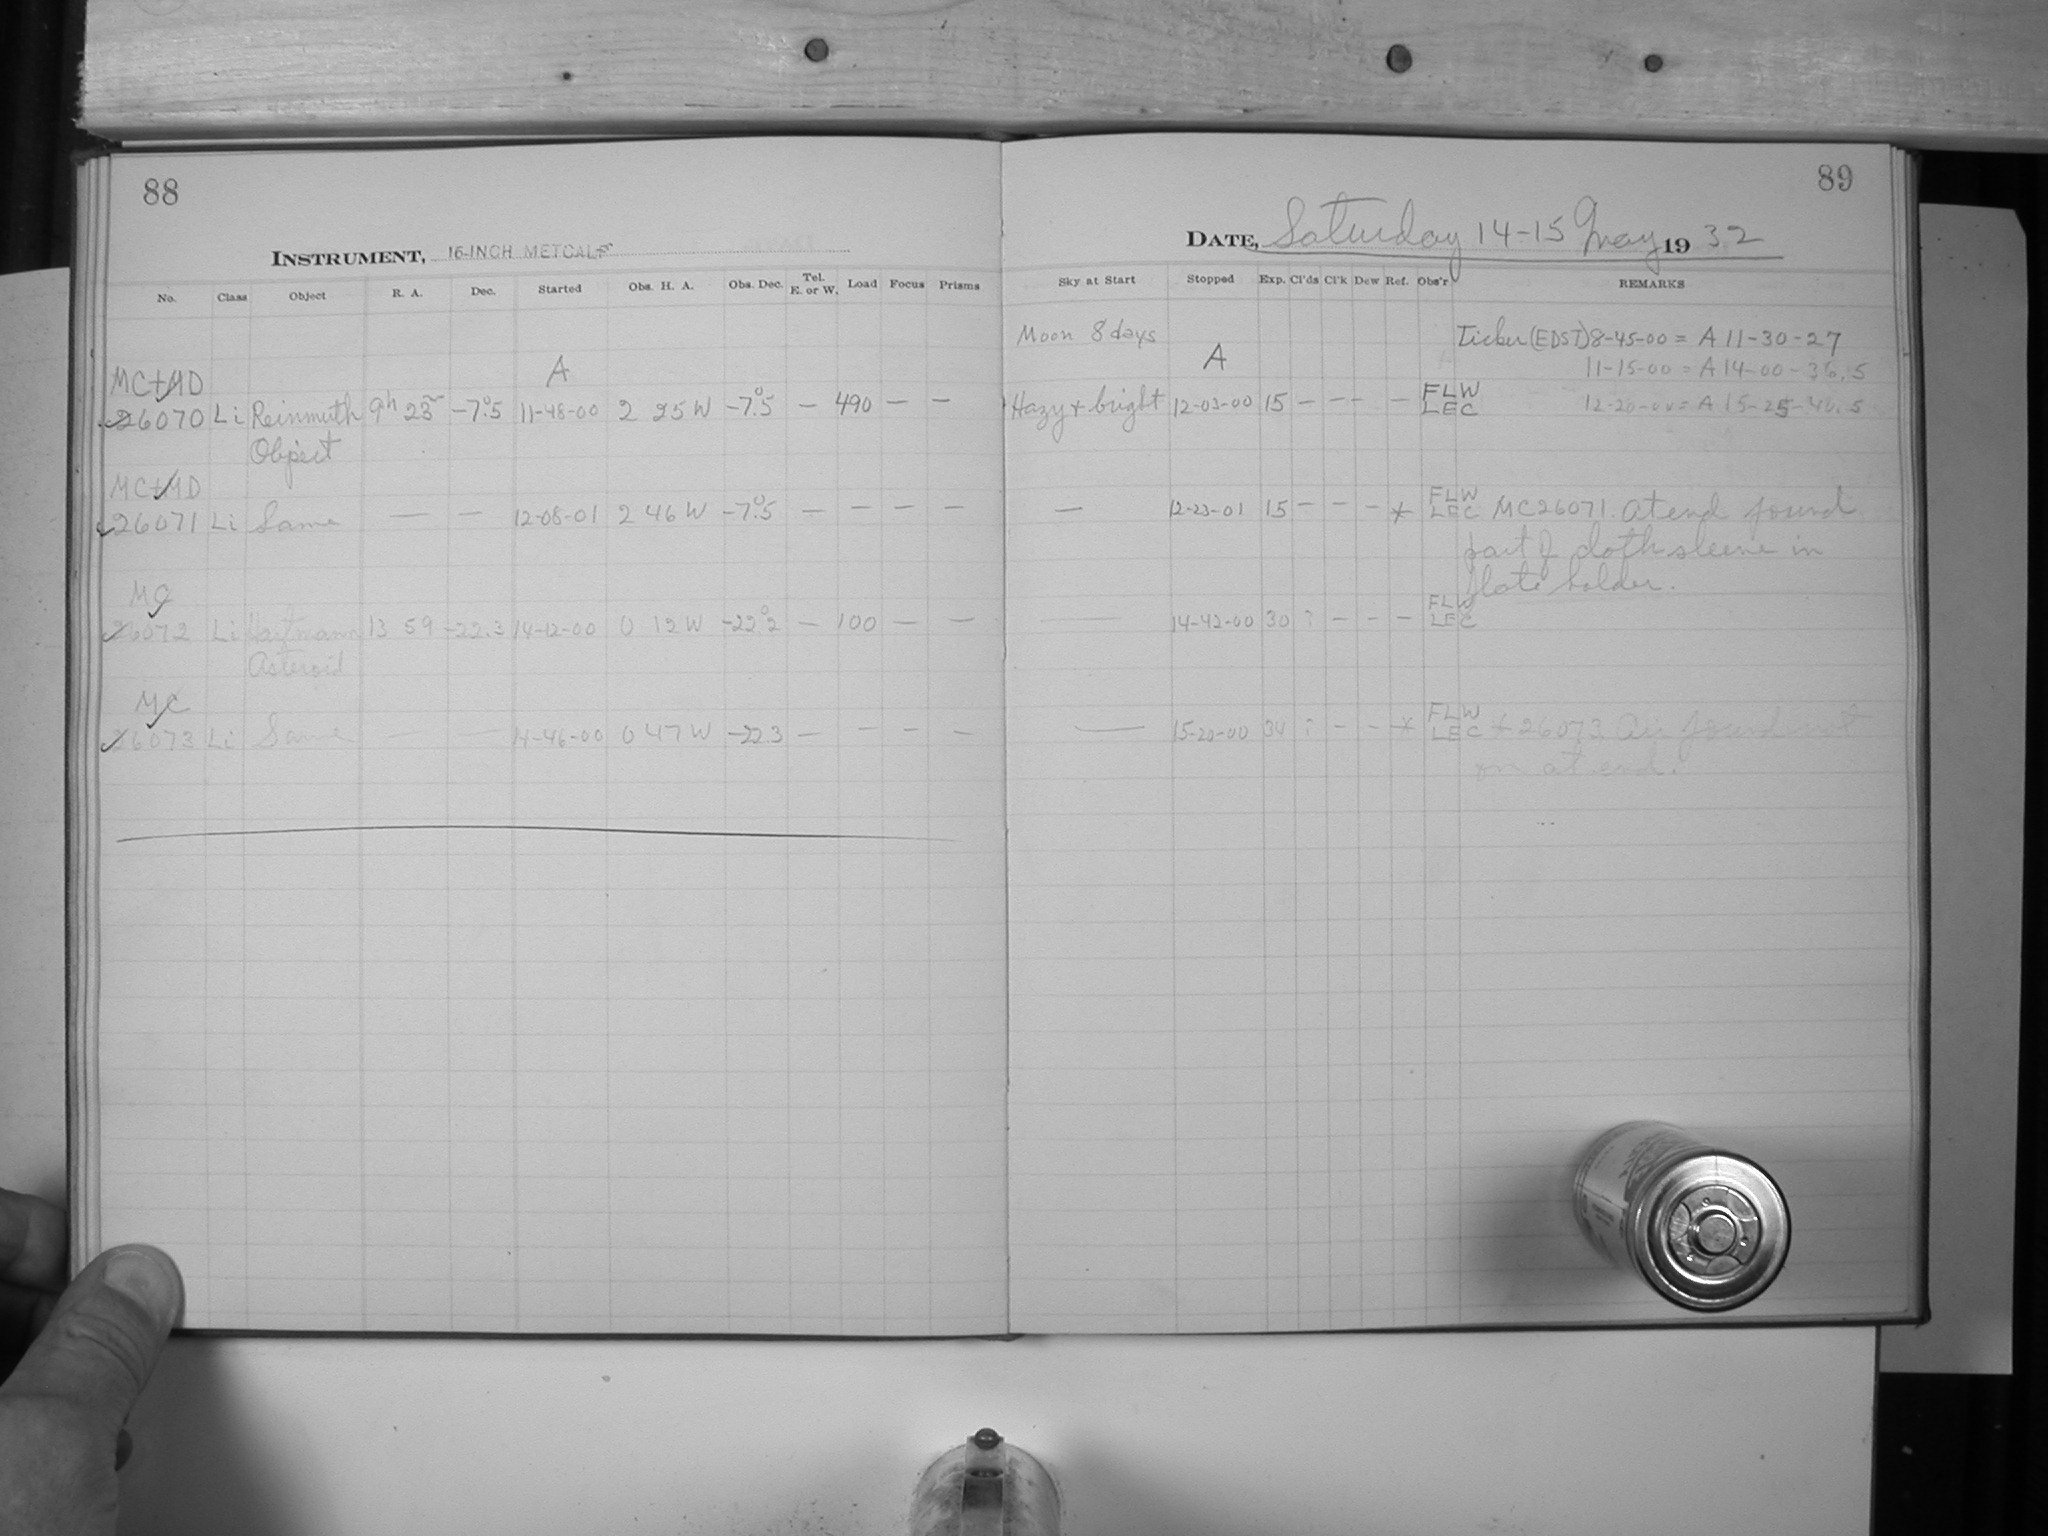 88
INSTRUMENT, 16-INCH METCALF
No. Class Object R. A. Dec. Started Obs. H. A. Obs. Dec. Tel. E. or W. Load Focus Prisms
A
MC+MD
26070 Li Reinmuth 9h 23m -7°.5 11-48-00 2 25 W -7°.5 — 490 — —
Object
MC+MD
26071 Li Same — — 12-08-01 2 46 W -7°.5 — — — —
MC
26072 Li Hartmann 13 59 -22.3 14-12-00 0 12 W -22°.2 — 100 — —
Asteroid
MC
26073 Li Same — — 14-46-00 0 47 W -22.3 — — — —
89
DATE, Saturday 14-15 May 1932
Sky at Start Stopped Exp. Cl'ds Cl'k Dew Ref. Obs'r REMARKS
Moon 8 days Ticker (EDST) 8-45-00 = A 11-30-27
A 11-15-00 = A 14-00-36.5
Hazy + bright 12-03-00 15 — — — — FLW LEC 12-20-00 = A 15-25-40.5
— 12-23-01 15 — — — * FLW LEC MC26071. At end found
part of cloth sleeve in
plate holder.
— 14-42-00 30 ? — — — FLW LEC
— 15-20-00 34 ? — — * FLW LEC * 26073 Air found not
on at end.